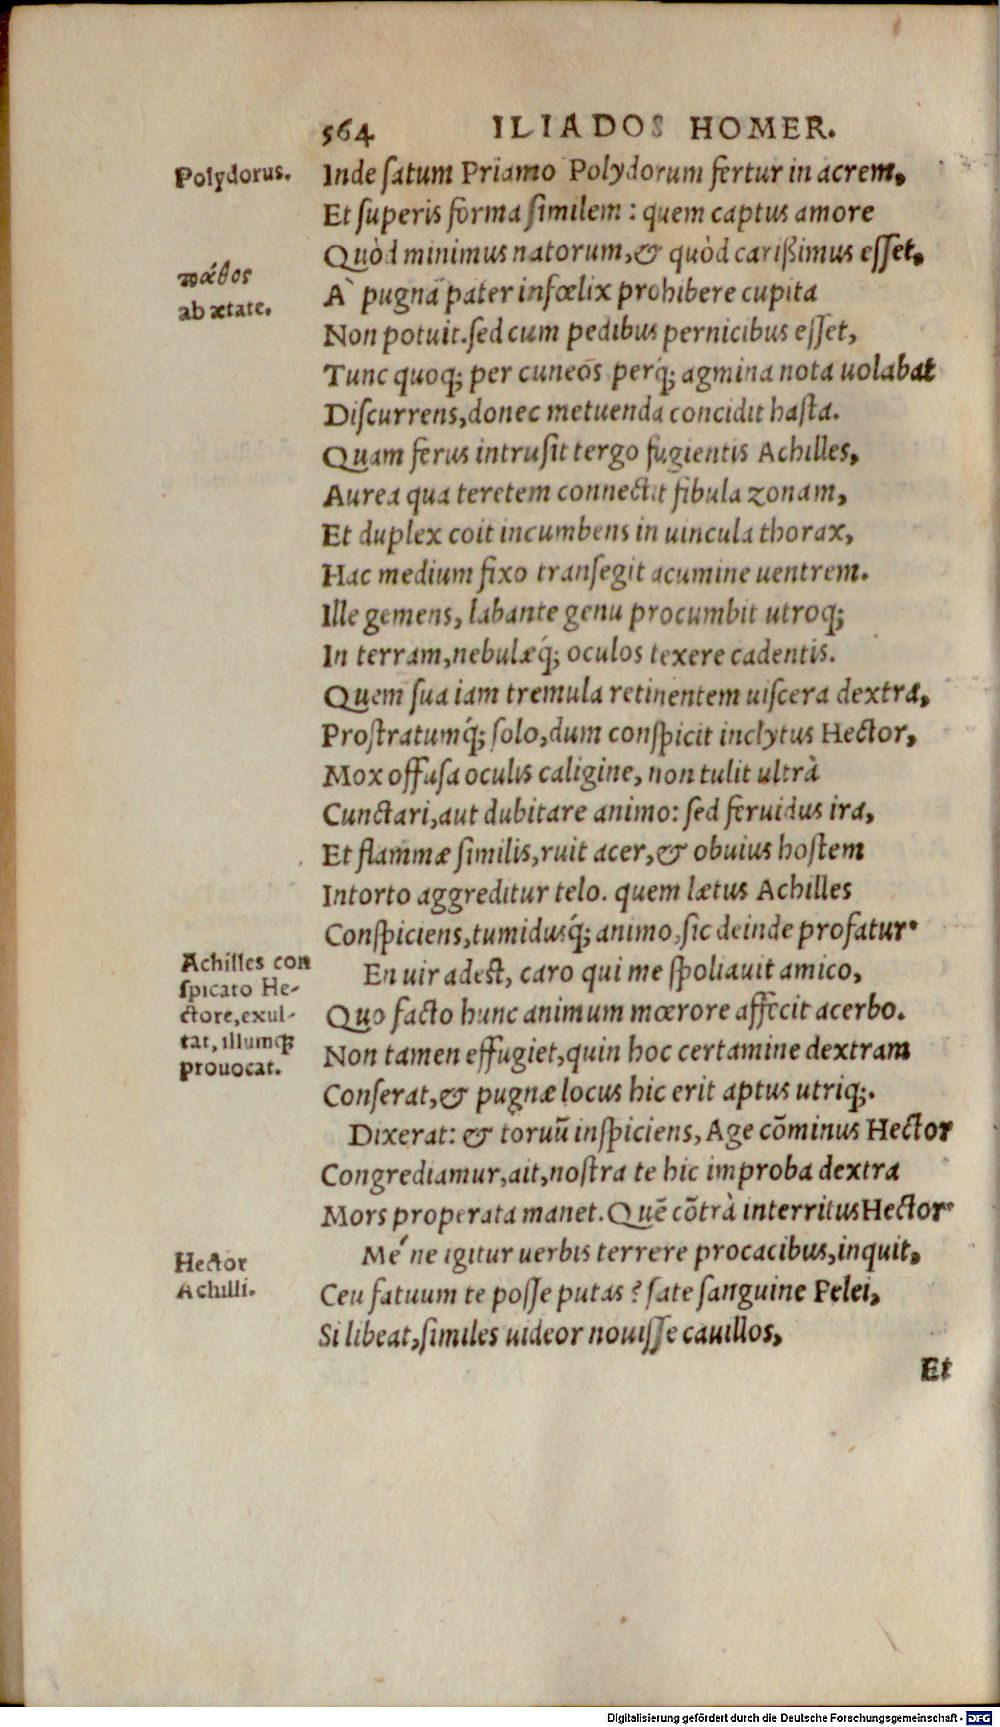 564 ILIADOS HOMER.
Polydorus.
Inde satum Priamo Polydorum fertur in acrem,
Et superis forma similem : quem captus amore
Quòd minimus natorum, & quòd carißimus esset,
πάθος
ab ætate.
A` pugnā pater infœlix prohibere cupita
Non potuit. sed cum pedibus pernicibus esset,
Tunc quoq; per cuneos perq́; agmina nota uolabat
Discurrens, donec metuenda concidit hasta.
Quam ferus intrusit tergo fugientis Achilles,
Aurea qua teretem connectit fibula zonam,
Et duplex coit incumbens in uincula thorax,
Hac medium fixo transegit acumine uentrem.
Ille gemens, labante genu procumbit utroq;
In terram, nebulæq́; oculos texere cadentis.
Quem sua iam tremula retinentem uiscera dextra,
Prostratumq́; solo, dum conspicit inclytus Hector,
Mox offusa oculis caligine, non tulit ultrà
Cunctari, aut dubitare animo: sed feruidus ira,
Et flammæ similis, ruit acer, & obuius hostem
Intorto aggreditur telo. quem lætus Achilles
Conspiciens, tumidusq́; animo, sic deinde profatur.
Achilles con
spicato He-
ctore, exul-
tat, illumq;
prouocat.
En uir adest, caro qui me spoliauit amico,
Quo facto hunc animum mœrore affecit acerbo.
Non tamen effugiet, quin hoc certamine dextram
Conserat, & pugnæ locus hic erit aptus utriq;.
Dixerat: & toruū inspiciens, Age cōminus Hector
Congrediamur, ait, nostra te hic improba dextra
Mors properata manet. Quē cōtrà interritus Hector
Hector
Achilli.
Me´ ne igitur uerbis terrere procacibus, inquit,
Ceu fatuum te posse putas ? sate sanguine Pelei,
Si libeat, similes uideor nouisse cauillos,
Et
Digitalisierung gefördert durch die Deutsche Forschungsgemeinschaft - DFG